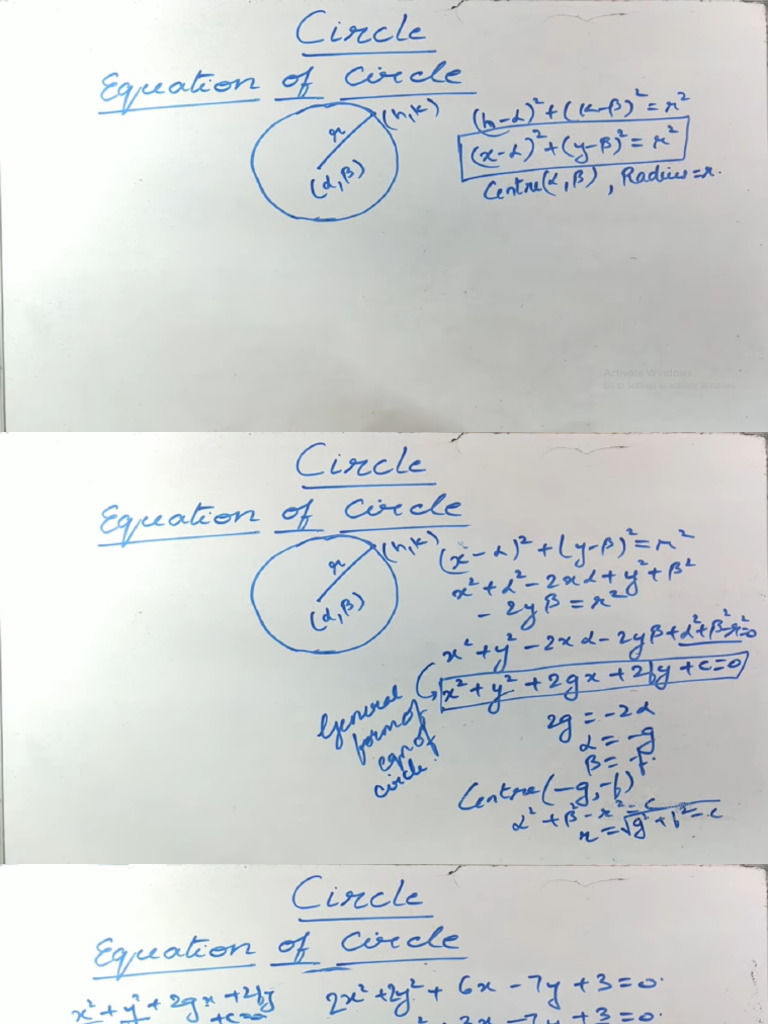 Circle
Equation of Circle
r (h,k)
(α,β)
(h-α)²+(k-β)²=r²
(x-α)²+(y-β)²=r²
Centre(α,β), Radius=r.
Activate Windows
Go to Settings to activate Windows.
Circle
Equation of Circle
r (h,k)
(α,β)
(x-α)²+(y-β)²=r²
x²+α²-2xα+y²+β²
-2yβ=r²
x²+y²-2xα-2yβ+α²+β²-r²=0
x²+y²+2gx+2fy+c=0
General
form of
eqn of
circle.
2g=-2α
α=-g
β=-f.
Centre(-g,-f)
α²+β²-r²=c
r=√g²+f²-c
Circle
Equation of Circle
x²+y²+2gx+2fy
+c=0
2x²+2y²+6x-7y+3=0.